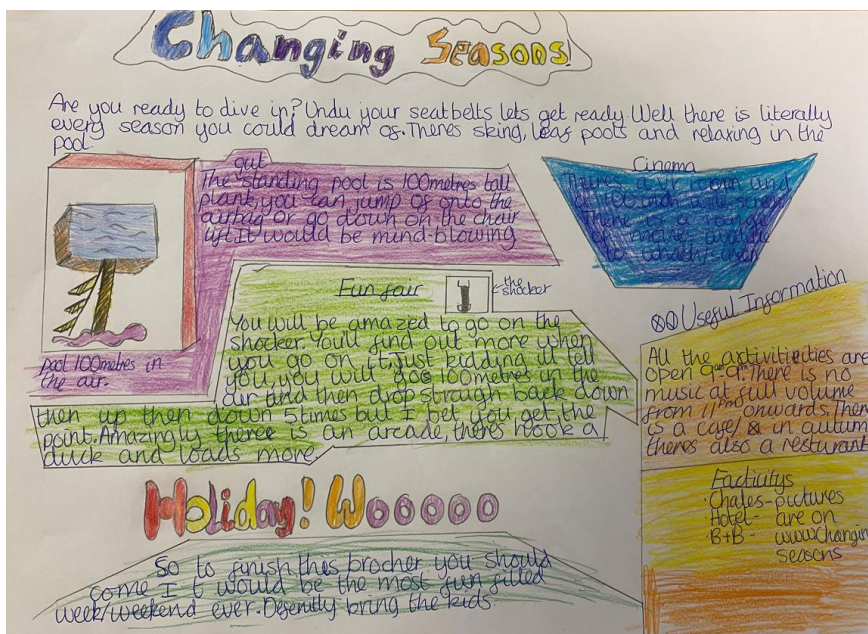 Changing Seasons!
Are you ready to dive in? Undu your seatbelts lets get ready. Well there is literally
every season you could dream of. Theres skiing, leaf pools and relaxing in the
pool.
out
The standing pool is 100metres tall
plank, you can jump of onto the
airbag or go down on the chair
lift. It would be mind-blowing
pool 100metres in
the air.
Cinema
Theres a vr room and
a 100 inch wide screen
There is a range
of movie
to watch
Fun fair
the
shocker
You will be amazed to go on the
shocker. You'll find out more when
you go on it, Just kidding ill tell
you, you will go 100metres in the
air and then drop strugh back down
then up then down 5times but I bet you get the
point. Amazingly there is an arcade, theres hook a
duck and loads more
Useful Information
All the activities are
open There is no
music at full volume
from 11pm onwards. There
is a cafe/ & in autum
theres also a resturant
Facticitys
·Chales- pictures
·Hotel- are on
·B+B- www.Changin
seasons
Holiday! Wooooo
So to finish this brocher you should
come. It would be the most fun filled
week/weekend ever. Defenitly bring the kids.